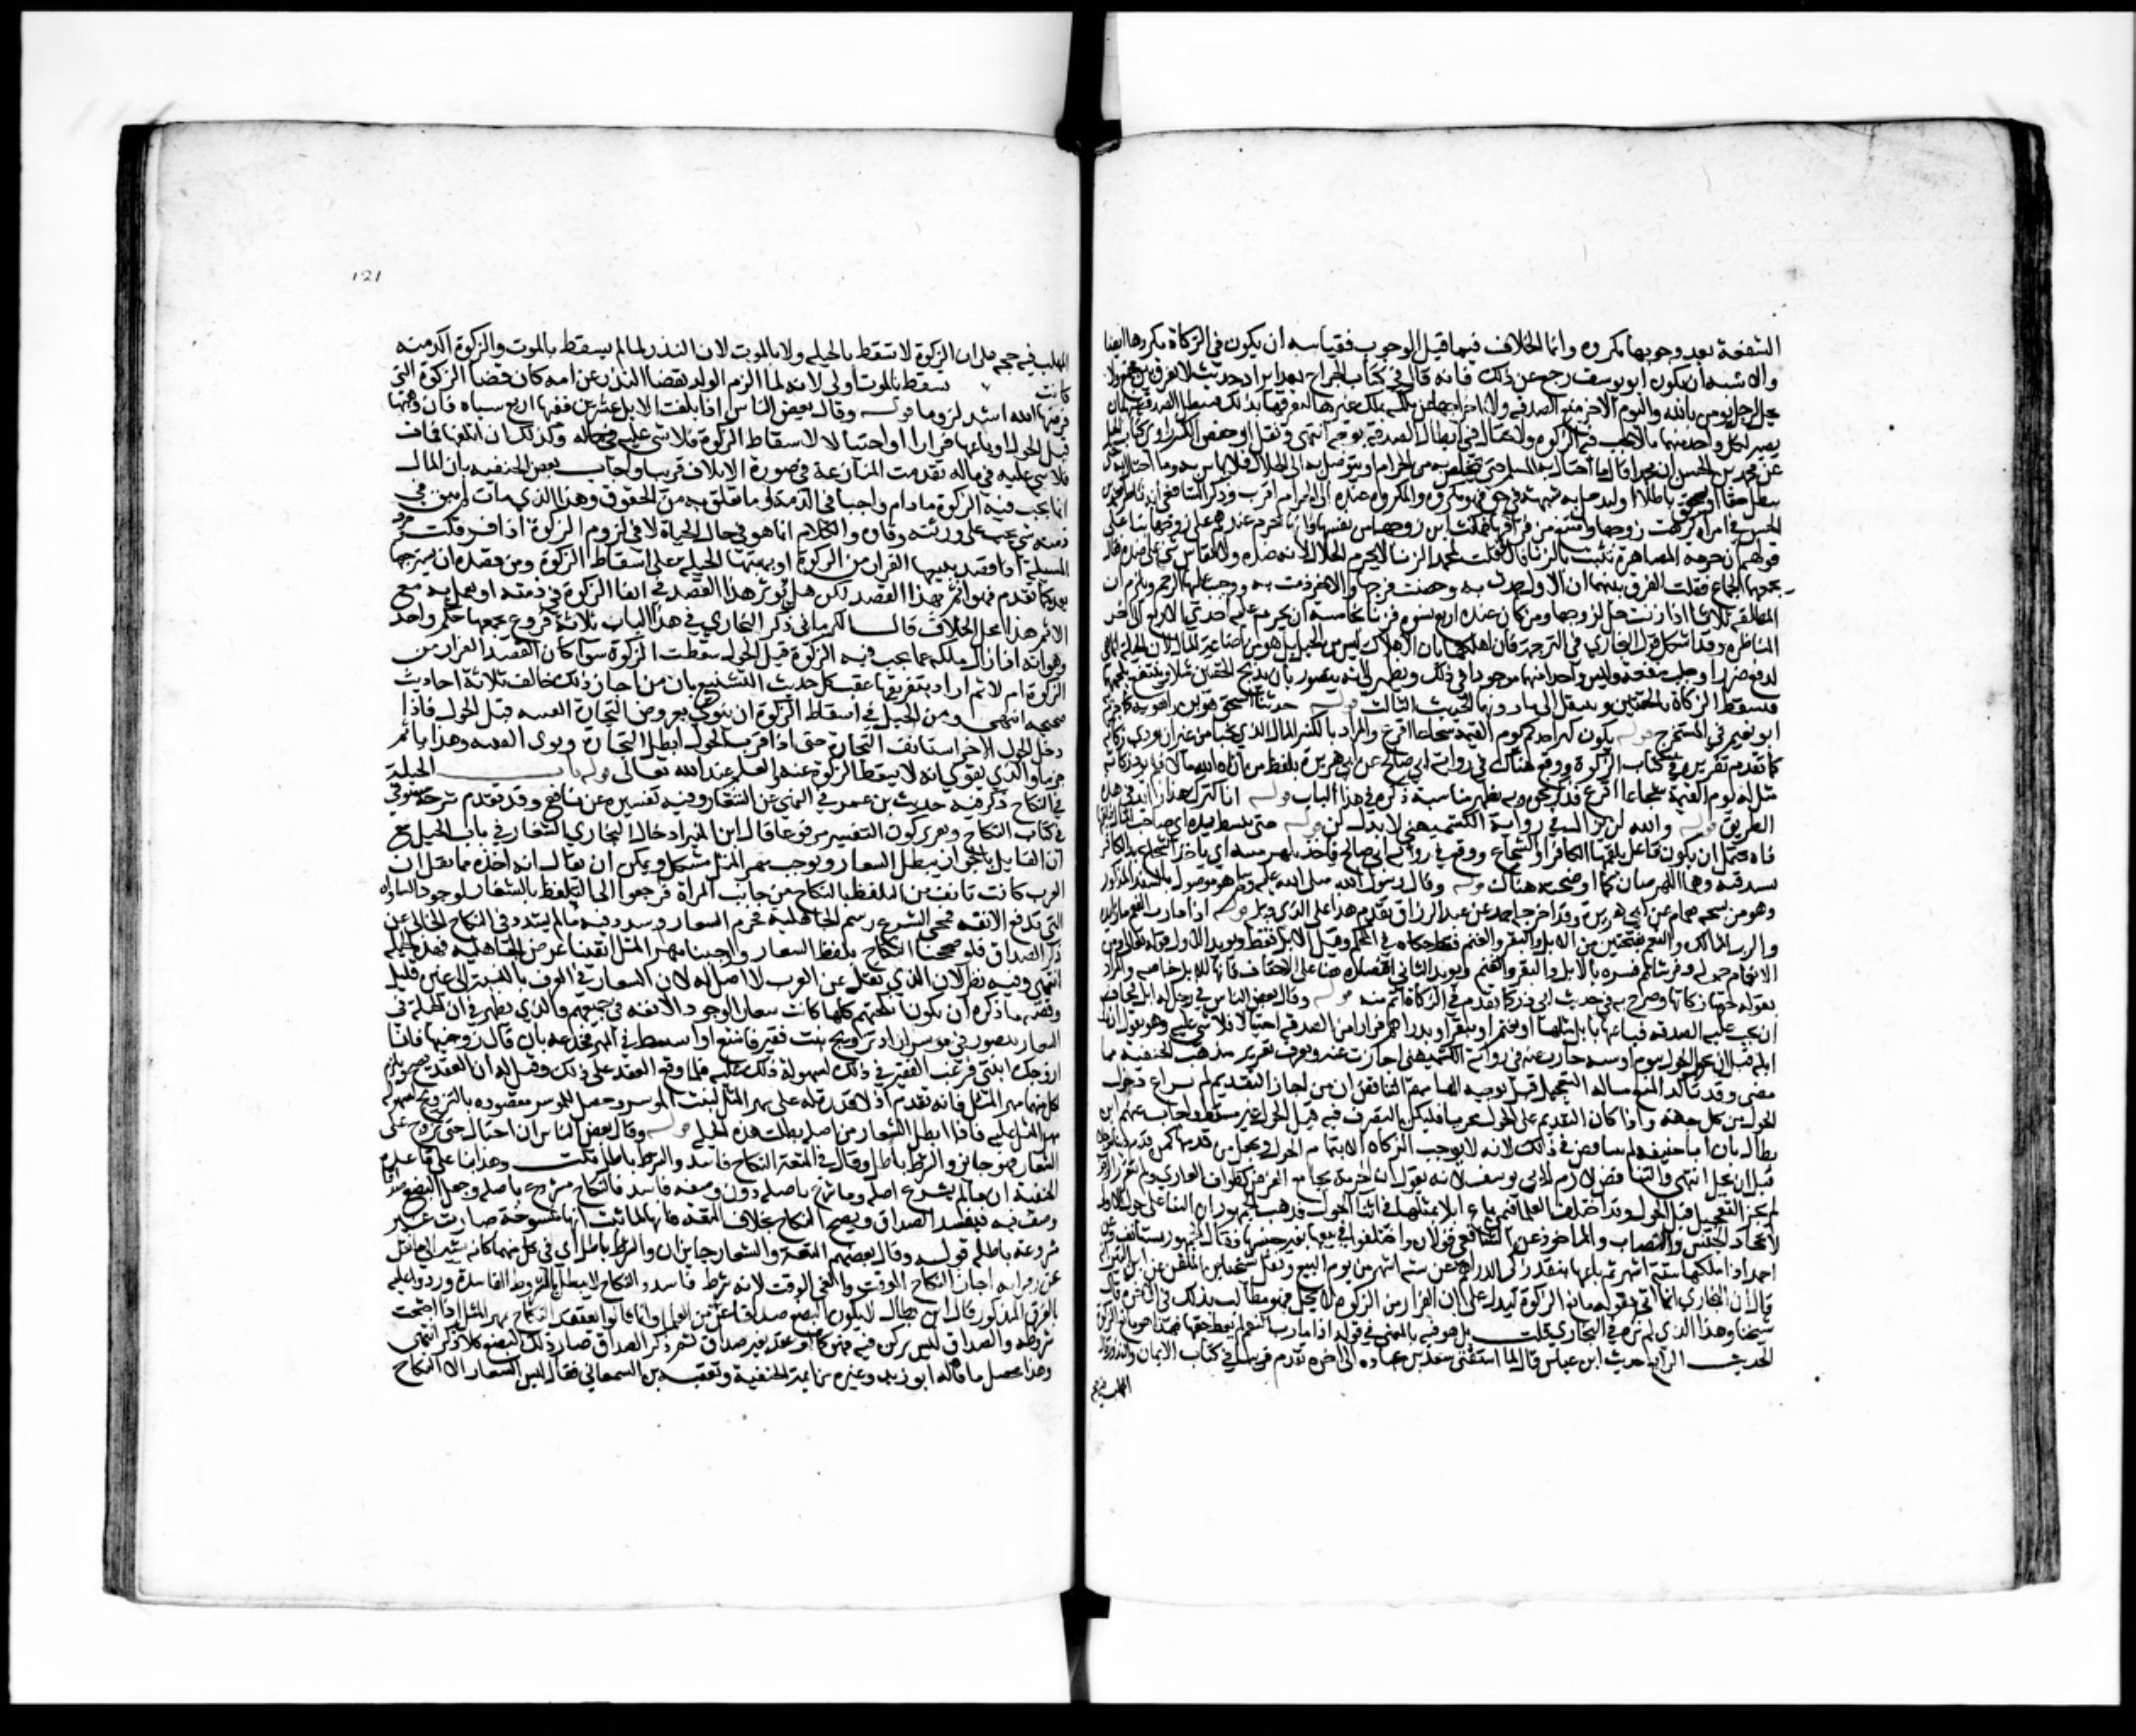 الشفعة بعد وجوبها مكروه وانما الخلاف فيما قبل الوجوب فقياسه ان يكون في الزكاة مكروها ايضا
والاشبه ان يكون ابو يوسف رجع عن ذلك فانه قال في كتاب الخراج بعد ايراد حديث لا يفرق بين مجتمع ولا
يحل لرجل يومن بالله واليوم الاخر منع الصدقة ولا اخراجها عن ملكه لملك غيره ليفرقها بذلك فتبطل الصدقة عنها بان
يصير لكل واحد منهما ما لا تجب فيه الزكوة ولا يحتال في ابطال الصدقة بوجه انتهى ونقل ابو حفص الكبير راوي كتاب الحيل
عن محمد بن الحسن ان محمدا قال ما احتال به المسلم حتى يتخلص به من الحرام او يتوصل به الى الحلال فلا باس به وما احتال به حتى
يبطل حقا او يحق باطلا او ليدخل به شبهة في حق فهو مكروه والمكروه عنده الى الحرام اقرب وذكر الشافعي انه ناظر محمد بن
الحسن في امراة كرهت زوجها وامتنع من فراقها فمكنت ابن زوجها من نفسها فانها تحرم عندهم على زوجها بنا على
قولهم ان حرمة المصاهرة تثبت بالزنا قال فقلت لمحمد الزنا لا يحرم الحلال لانه ضده ولا يقاس شي على ضده فقال
يجمعهما الجماع فقلت الفرق بينهما ان الاول حمدت به وحصنت فرجها والاخر ذمت به ووجب عليها الرجم ويلزم ان
المطلقة ثلاثا اذا زنت حلت لزوجها ومن كان عنده اربع نسوة فزنا بخامسة ان تحرم عليه احدى الاربع الى اخر
المناظرة وقد اشكل قول البخاري في الترجمة فان اهلكها بان الاهلاك ليس من الحيل بل هو من اضاعة المال لان الحيلة انما هي
لدفع ضرر او جلب منفعة وليس واحد منهما موجودا في ذلك ويظهر لي انه يتصور بان يذبح الحقتين مثلا وينتفع بلحمهما
فتسقط الزكاة بالحقتين وينتقل الى ما دونهما الحديث الثالث قوله حدثنا اسحق هو ابن راهويه كما جزم به
ابو نعيم في المستخرج قوله يكون كنز احدكم يوم القيمة شجاعا اقرع والمراد بالكنز المال الذي يخبا من غير ان تودى زكاته
كما تقدم تقريره في كتاب الزكوة ووقع هناك في رواية ابي صالح عن ابي هريرة بلفظ من اتاه الله مالا فلم يود زكاته
مثل له يوم القيمة شجاعا اقرع فذكر نحوه وبه تظهر مناسبة ذكره في هذا الباب قوله انا كنزك هذا زايد في هذه
الطريق قوله والله لن يزال في رواية الكشميهني لا بدل لن قوله حتى يبسط يده اي صاحب المال
فاه يحتمل ان يكون فاعل يلقمها الكانز او الشجاع ووقع في رواية ابي صالح فياخذ بلهزمتيه اي ياخذ الشجاع يد الكانز
بشدقيه وهما اللهزمتان كما اوضحته هناك قوله وقال رسول الله صلى الله عليه وسلم هو موصول بالسند المذكور
وهو من نسخة همام عن ابي هريرة وقد اخرجه احمد عن عبد الرزاق بتقديم هذا على الذي قبله قوله اذا ما رب النعم ما زايدة
والرب المالك والنعم بفتحتين من الابل والبقر والغنم فقط حكاه في المحكم وقيل الابل فقط ويويد الاول قوله تعالى ومن
الانعام حمولة وفرشا ثم فسره بالابل والبقر والغنم ويويد الثاني اقتصاره هنا على الاخفاف فانها للابل خاصة والمراد
بقوله حقها زكاتها وصرح به في حديث ابي ذر كما تقدم في الزكاة اتم منه قوله وقال بعض الناس في رجل له ابل فخاف
ان تجب عليه الصدقة فباعها بابل مثلها او بغنم او ببقر او بدراهم فرارا من الصدقة احتيالا فلا شي عليه وهو يقول ان زكى
ابله قبل ان يحول الحول بيوم او سنة جازت عنه في رواية الكشميهني اجازت عنه ويعرف تقرير مذهب الحنفية مما
مضى وقد تاكد المنع بمسالة التعجيل قيل توجيه الزامهم التناقض ان من اجاز التقديم لم يراع دخول
الحول من كل جهة واذا كان التقديم على الحول مجزيا فليكن التصرف فيه قبل الحول غير مسقط واجاب عنهم ابن
بطال بان ابا حنيفة لم يتناقض في ذلك لانه لا يوجب الزكاة الا بتمام الحول ويجعل من قدمها كمن قدم دينا موجلا
قبل ان يحل انتهى والتناقض لازم لابي يوسف لانه يقول ان الحرمة تجامع الفرض كطواف العاري ولو لم يتقرر الوجوب
لم يجز التعجيل قبل الحول وقد اختلف العلما فيمن باع ابلا بمثلها في اثنا الحول فذهب الجمهور الى ان البنا على حول الاولى
لاتحاد الجنس والنصاب والماخوذ عن الشافعي قولان واختلفوا في بيعها بغير جنسها فقال الجمهور يستانف وعن
احمد اذا ملكها ستة اشهر ثم باعها بنقد زكى الدراهم عن ستة اشهر من يوم البيع ونقل شيخنا ابن الملقن عن ابن التين انه
قال ان البخاري انما اتى بقوله مانع الزكوة ليدل على ان الفرار من الزكوة لا يحل فهو مطالب بذلك في الاخرة قال
شيخنا وهذا الذي لم نره في البخاري قلت بل هو فيه بالمعنى في قوله اذا ما رب النعم لم يعط حقها فهذا هو مانع الزكوة
الحديث الرابع حديث ابن عباس قال لما استفتى سعد بن عبادة الى اخره تقدم قريبا في كتاب الايمان والنذور قال
المهلب فيه حجة
121
المهلب فيه حجة على ان الزكوة لا تسقط بالحيلة ولا بالموت لان النذر لما لم يسقط بالموت والزكوة اكد منه
كانت سقط بالموت اولى لانه لما الزم الولد بقضا النذر عن امه كان قضا الزكوة التي
فرضها الله اشد لزوما قوله وقال بعض الناس اذا بلغت الابل عشرين ففيها اربع شياه فان وهبها
قبل الحول او باعها فرارا او احتيالا لاسقاط الزكوة فلا شي عليه في ماله وكذلك ان اتلفها فمات
فلا شي عليه في ماله تقدمت المنازعة في صورة الاتلاف قريبا واجاب بعض الحنفية بان المال
انما تجب فيه الزكوة ما دام واجبا في الذمة او ما تعلق به من الحقوق وهذا الذي مات لم يبق في
ذمته شي يجب على ورثته وفاوه والكلام انما هو في حال الحياة لا في لزوم الزكوة اذا فر قلت حرف
المسيلة اذا قصد ببيعها الفرار من الزكوة او بهبتها الحيلة على اسقاط الزكوة ومن قصده ان يسترجعها
بعد كما تقدم فهو اثم بهذا القصد لكن هل يوثر هذا القصد في ابقا الزكوة في ذمته او يعمل به مع
الاثم هذا محل الخلاف قال الكرماني ذكر البخاري في هذا الباب ثلاثة فروع يجمعها حكم واحد
وهو انه اذا زال ملكه عما تجب فيه الزكوة قبل الحول سقطت الزكوة سوا كان لقصد الفرار من
الزكوة ام لا ثم اراد بتفريعها عقب كل حديث التشنيع بان من اجاز ذلك خالف ثلاثة احاديث
صحيحة انتهى ومن الحيل في اسقاط الزكوة ان ينوي بعروض التجارة القنية قبل الحول فاذا
دخل الحول الاخر استانف التجارة حتى اذا قرب الحول ابطل التجارة ونوى القنية وهذا ياثم
جزما والذي يقوى انه لا يسقط الزكوة عنه والعلم عند الله تعالى قوله باب الحيلة
في النكاح ذكر فيه حديث بن عمر في النهي عن الشغار وفيه تفسيره عن نافع وقد تقدم شرحه مستوفى
في كتاب النكاح وتقرير كون التفسير مرفوعا قال ابن المنير ادخال البخاري الشغار في باب الحيل مع
ان القايل بالجواز يبطل الشغار ويوجب مهر المثل مشكل ويمكن ان يقال انه اخذه مما نقل ان
العرب كانت تانف من التلفظ بالنكاح من جانب المراة فرجعوا الى التلفظ بالشغار لوجود المساواة
التي تدفع الانفة فمحى الشرع رسم الجاهلية فحرم الشغار وشدد فيه ما لم يشدد في النكاح الخالي عن
ذكر الصداق فلو صححنا النكاح بلفظ الشغار واوجبنا مهر المثل ابقينا غرض الجاهلية بهذه الحيلة
انتهى وفيه نظر لان الذي نقله عن العرب لا اصل له لان الشغار في العرف بالنسبة الى غيره قليل
وقضية ما ذكره ان يكون انكحتهم كلها كانت شغارا لوجود الانفة في جميعهم والذي يظهر لي ان الحيلة في
الشغار تتصور في موسر اراد تزويج بنت فقير فامتنع او اشتط في المهر فخدعه بان قال زوجنيها فانا
ازوجك ابنتي فرغب الفقير في ذلك لسهولة ذلك عليه فلما وقع العقد على ذلك وقيل له ان العقد يصح ويلزم
لكل منهما مهر المثل فانه تقدم اذ لا قدرة له على مهر المثل لبنت الموسر وحصل للموسر مقصوده بالتزويج لسهولة
مهر المثل عليه فاذا ابطل الشغار من اصله بطلت هذه الحيلة قوله وقال بعض الناس ان احتال حتى تزوج على
الشغار فهو جايز والشرط باطل وقال في المتعة النكاح فاسد والشرط باطل قلت وهذا بنا على قاعدة
الحنفية ان ما لم يشرع اصله وما شرع باصله دون وصفه فاسد فالنكاح مشروع باصله وجعل البضع صداقا
وصف فيه فيفسد الصداق ويصح النكاح بخلاف المتعة فانها لما ثبت انها منسوخة صارت غير
مشروعة باطله قوله وقال بعضهم المتعة والشغار جايزان والشرط باطل اي في كل منهما كانه يشير الى ما نقل
عن زفر انه اجاز النكاح الموقت والغى الوقت لانه شرط فاسد والنكاح لا يبطل بالشروط الفاسدة وردوا عليه
بالفرق المذكور قال ابن بطال لا يكون البضع صداقا عند احد من العلما وانما قالوا ينعقد النكاح بمهر المثل اذا اجتمعت
شروطه والصداق ليس بركن فيه فهو كما لو عقد بغير صداق ثم ذكر الصداق صار ذكر البضع كلا ذكر انتهى
وهذا محصل ما قاله ابو زيد وغيره من ايمة الحنفية وتعقبه بن السمعاني فقال ليس الشغار الا النكاح